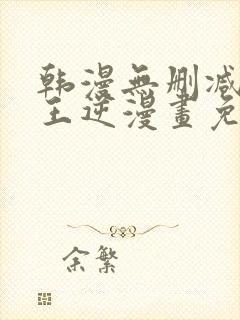 韩漫無删减
王逆漫畫免
余繁